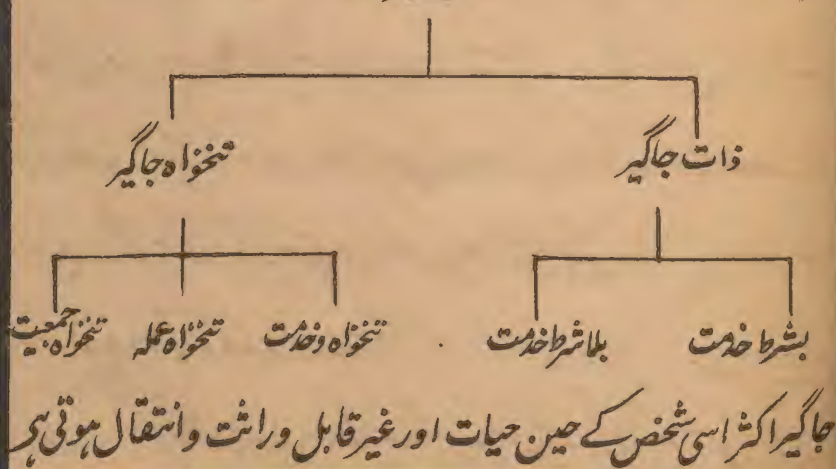 ذات جاگیر تنخواہ جاگیر
بشرط خدمت بلا شرط خدمت تنخواہ و خدمت تنخواہ عملہ تنخواہ جمعیت
جاگیر اکثر اسی شخص کے حین حیات اور غیر قابل وراثت و انتقال ہوتی ہی